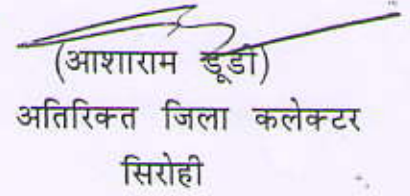 (आशाराम डूडी)
अतिरिक्त जिला कलेक्टर
सिरोही